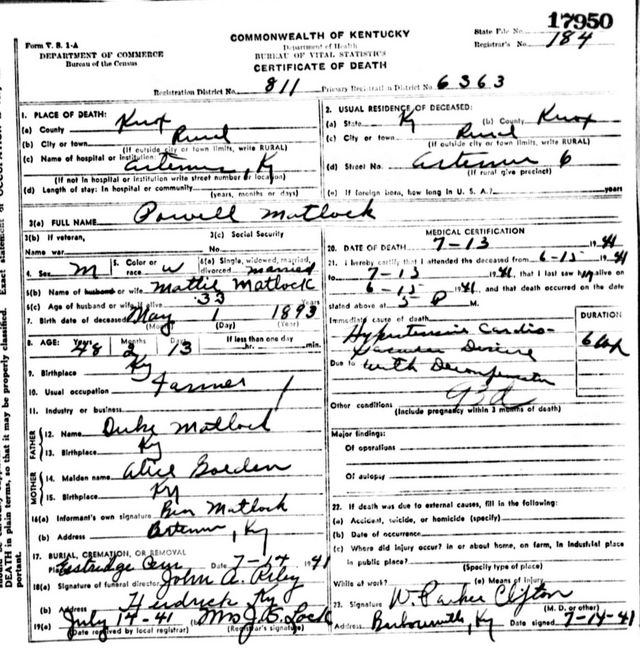 17950
Form V. S. 1-A
DEPARTMENT OF COMMERCE
Bureau of the Census
COMMONWEALTH OF KENTUCKY
Department of Health
BUREAU OF VITAL STATISTICS
CERTIFICATE OF DEATH
State File No.
Registrar's No. 184
Registration District No. 811 Primary Registration District No. 6363
1. PLACE OF DEATH:
(a) County Knox
(b) City or town Rural
(If outside city or town limits, write RURAL)
(c) Name of hospital or institution: Artemus, Ky
(If not in hospital or institution write street number & location)
(d) Length of stay: In hospital or community
(years, months or days)
2. USUAL RESIDENCE OF DECEASED:
(a) State Ky (b) County Knox
(c) City or town Rural
(If outside city or town limits, write RURAL)
(d) Street No. Artemus 6
(If rural give precinct)
(e) If foreign born, how long in U. S. A.? years
3(a) FULL NAME Powell Matlock
3(b) If veteran,
Name war
3(c) Social Security
No.
4. Sex M 5. Color or race W 6(a) Single, widowed, married, divorced married
6(b) Name of husband or wife Mattie Matlock
6(c) Age of husband or wife if alive 33 Years
7. Birth date of deceased May 1 1893
(Month) (Day) (Year)
8. AGE: Years 48 Months 2 Days 13 If less than one day
hr. min.
9. Birthplace Ky
10. Usual occupation Farmer
11. Industry or business
FATHER
12. Name Duke Matlock
13. Birthplace Ky
MOTHER
14. Maiden name Alice
15. Birthplace Ky
16(a) Informant's own signature Ben Matlock
(b) Address Artemus, Ky
17. BURIAL, CREMATION, OR REMOVAL
Place Cem Date 7-14 1941
18(a) Signature of funeral director John A. Riley
(b) Address Ky
19(a) July 14-41 Mrs J. B. Lock
(Date received by local registrar) (Registrar's signature)
MEDICAL CERTIFICATION
20. DATE OF DEATH 7-13 1941
21. I hereby certify that I attended the deceased from 6-15 1941
to 7-13 1941, that I last saw him alive on
6-15 1941, and that death occurred on the date
stated above at 5 P M.
Immediate cause of death
Hypertensive Cardio-
vascular Disease
Due to with Decompensation
DURATION
Other conditions
(Include pregnancy within 3 months of death)
Major findings:
Of operations
Of autopsy
22. If death was due to external causes, fill in the following:
(a) Accident, suicide, or homicide (specify)
(b) Date of occurrence
(c) Where did injury occur? in or about home, on farm, in industrial place
in public place?
(Specify type of place)
While at work? (e) Means of injury
23. Signature W. Parker Clifton
(M. D. or other)
Address Barbourville, Ky Date signed 7-14-41
DEATH in plain terms, so that it may be properly classified. Exact
portant.